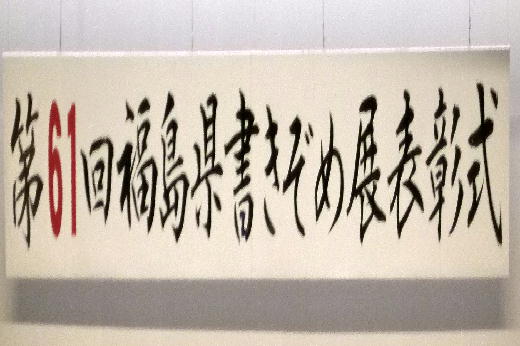 第61回福島県書きぞめ展表彰式